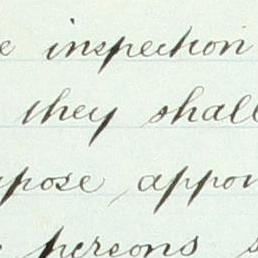 e inspection
they shall
pose appoi
persons s